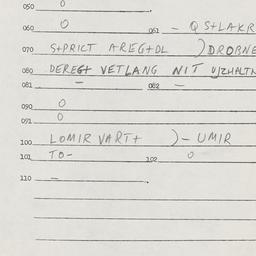 050 0
060 0 061 - QS+LAKR
070 S+PRICT AREG+DL )DROBNE
080 DEREG+ VETLANG NIT
081 - 082 -
090 0
091 0
100 LOMIR VART+ )- UMIR
101 TO- 102 0
110 -